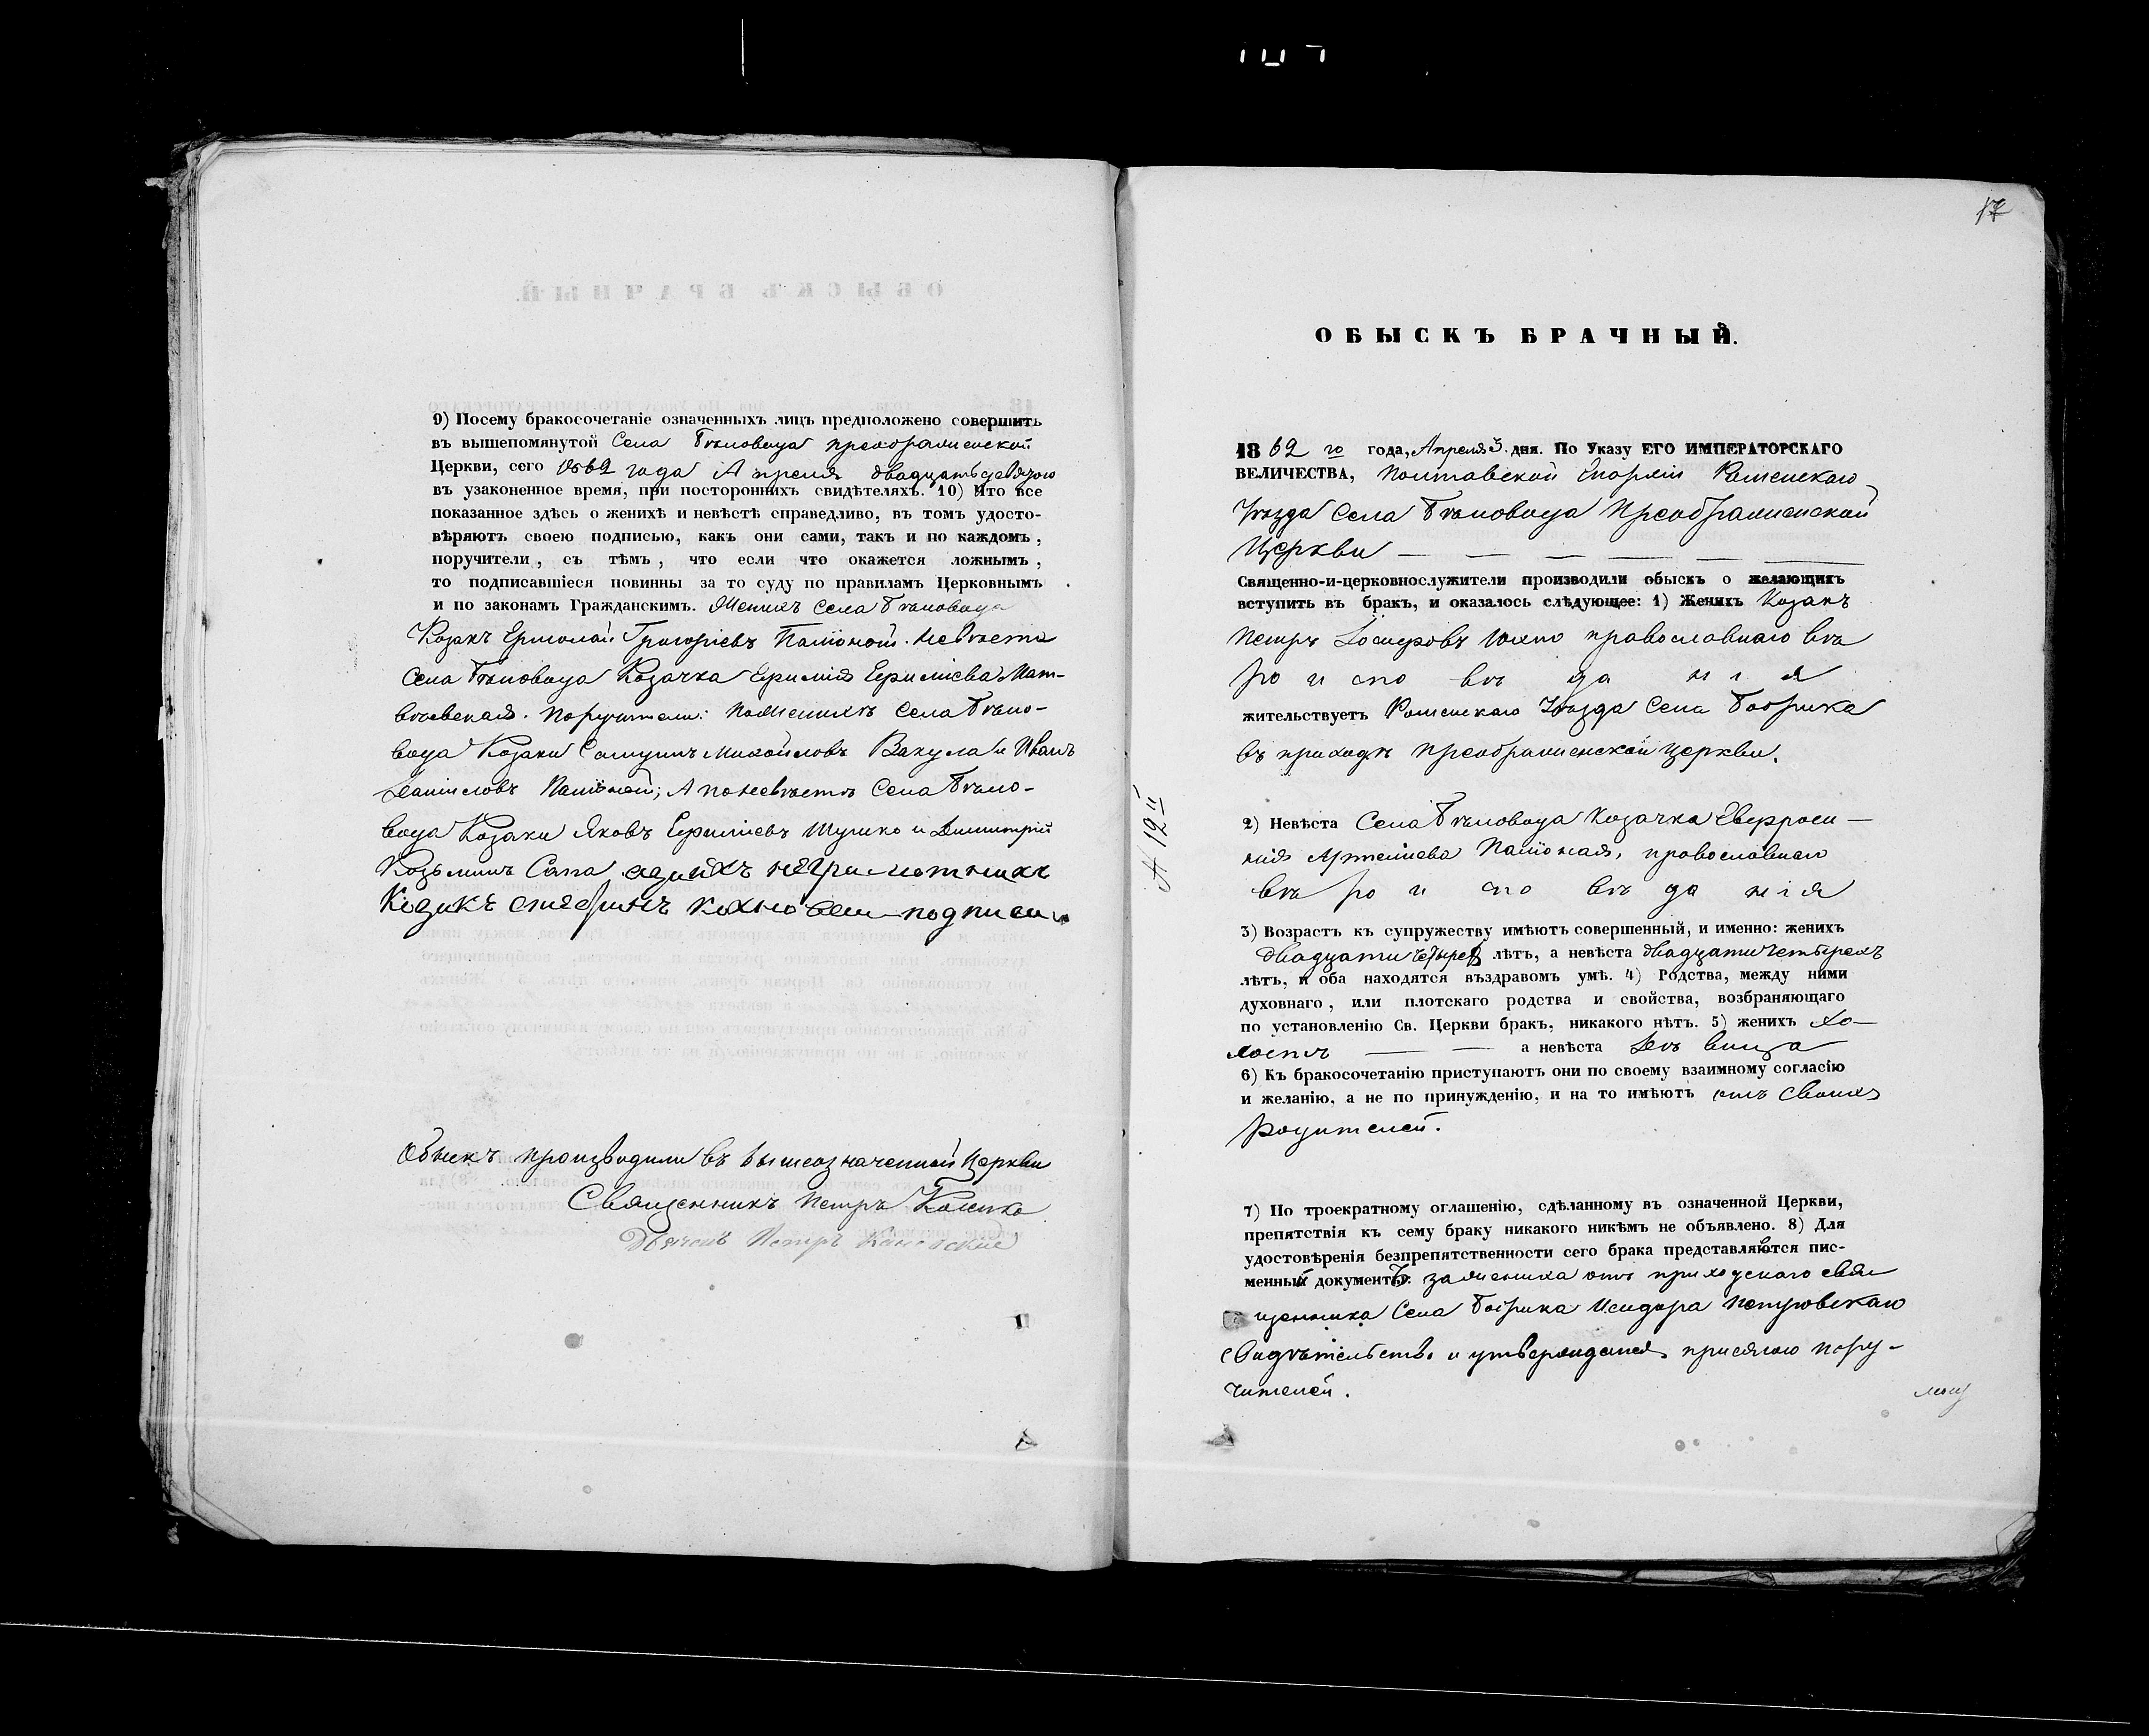 9) Посему бракосочетаніе означенныхъ лицъ предположено совершить
въ вышепомянутой Села Бѣловода Преображенской
Церкви, сего 1862 года Апреля двадцать девятого
въ узаконенное время, при постороннихъ свидѣтеляхъ. 10) Что все
показанное здѣсь о женихѣ и невѣстѣ справедливо, въ томъ удосто-
вѣряютъ своею подписью, какъ они сами, такъ и по каждомъ,
поручители, съ тѣмъ, что если что окажется ложнымъ,
то подписавшіеся повинны за то суду по правиламъ Церковнымъ
и по законамъ Гражданскимъ. Женихъ Села Бѣловода
Козакъ Ермолай Григоріевъ Невѣста
Села Бѣловода Козачка Мат-
Поручители: По женихѣ Села Бѣло-
вода Козаки Вакула и Иванъ
А по невѣстѣ Села Бѣло-
вода Козаки Яковъ и Димитрій
Козьминъ Сапа
Козакъ подписи
Обыскъ производили въ вышеозначенной Церкви
Священникъ Петръ
Дьячокъ Петръ
17
ОБЫСКЪ БРАЧНЫЙ.
1862 го года, Апреля 3. дня. По Указу ЕГО ИМПЕРАТОРСКАГО
ВЕЛИЧЕСТВА, Полтавской Епархіи Роменскаго
Уѣзда Села Бѣловода Преображенской
Церкви
Священно-и-церковнослужители производили обыскъ о желающихъ
вступить въ бракъ, и оказалось слѣдующее: 1) Женихъ Козакъ
Петръ Іосифовъ православнаго вѣ
ро и спо вѣ да н і я
жительствуетъ Роменскаго Уѣзда Села Бобрика
въ приходѣ Преображенской церкви.
А 12 й
2) Невѣста Села Бѣловода Козачка Евфроси-
нія Артеміева православнаго
вѣ ро и спо вѣ да н і я
3) Возрастъ къ супружеству имѣютъ совершенный, и именно: женихъ
двадцати четырех лѣтъ, а невѣста двадцати четырехъ
лѣтъ, и оба находятся въздравомъ умѣ. 4) Родства, между ними
духовнаго, или плотскаго родства и свойства, возбраняющаго
по установленію Св. Церкви бракъ, никакого нѣтъ. 5) женихъ хо-
лостъ а невѣста дѣвица
6) Къ бракосочетанію приступаютъ они по своему взаимному согласію
и желанію, а не по принужденію, и на то имѣютъ отъ своихъ
родителей.
7) По троекратному оглашенію, сдѣланному въ означенной Церкви,
препятствія къ сему браку никакого никѣмъ не объявлено. 8) Для
удостовѣренія безпрепятственности сего брака представляются пис-
менный документъ: за жениха отъ приходскаго свя
щенника Села Бобрика Исидора Петровскаго
свидѣтельство и утверждается присягою пору-
чителей.